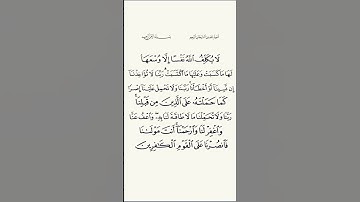 أعوذ بالله من الشيطان الرجيم بسم الله الرحمن الرحيم
لَا يُكَلِّفُ ٱللَّهُ نَفْسًا إِلَّا وُسْعَهَا
لَهَا مَا كَسَبَتْ وَعَلَيْهَا مَا ٱكْتَسَبَتْ رَبَّنَا لَا تُؤَاخِذْنَآ
إِن نَّسِينَآ أَوْ أَخْطَأْنَا رَبَّنَا وَلَا تَحْمِلْ عَلَيْنَآ إِصْرًا
كَمَا حَمَلْتَهُۥ عَلَى ٱلَّذِينَ مِن قَبْلِنَا
رَبَّنَا وَلَا تُحَمِّلْنَا مَا لَا طَاقَةَ لَنَا بِهِۦ وَٱعْفُ عَنَّا
وَٱغْفِرْ لَنَا وَٱرْحَمْنَآ أَنتَ مَوْلَىٰنَا
فَٱنصُرْنَا عَلَى ٱلْقَوْمِ ٱلْكَٰفِرِينَ